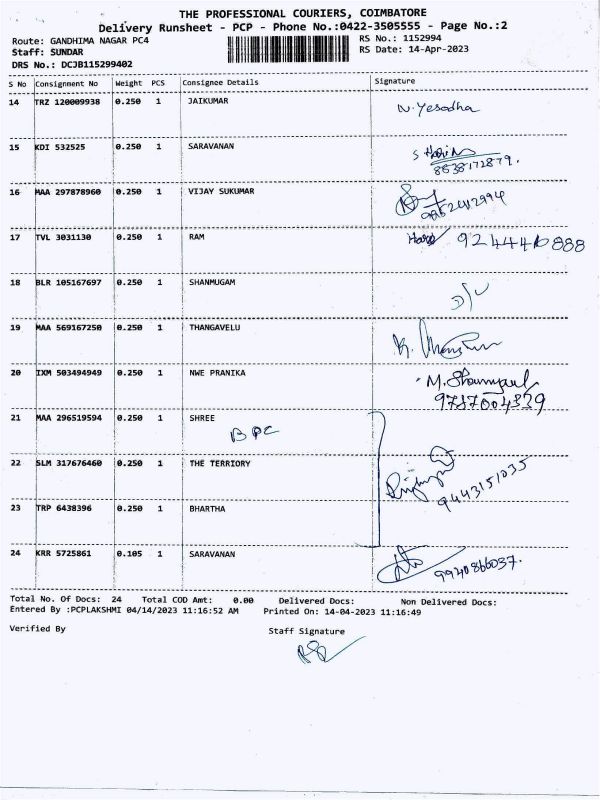 THE PROFESSIONAL COURIERS, COIMBATORE
Delivery Runsheet - PCP - Phone No.:0422-3505555 - Page No.:2
Route: GANDHIMA NAGAR PC4 RS No.: 1152994
Staff: SUNDAR RS Date: 14-Apr-2023
DRS No.: DCJB115299402
S No Consignment No Weight PCS Consignee Details Signature
14 TRZ 120009938 0.250 1 JAIKUMAR N. Yesodha
15 KDI 532525 0.250 1 SARAVANAN
8838172879.
16 MAA 297878960 0.250 1 VIJAY SUKUMAR
17 TVL 3031130 0.250 1 RAM
18 BLR 105167697 0.250 1 SHANMUGAM
19 MAA 569167250 0.250 1 THANGAVELU
20 IXM 503494949 0.250 1 NWE PRANIKA
9787004339
21 MAA 296519594 0.250 1 SHREE
BPC
22 SLM 317676460 0.250 1 THE TERRIORY
9443151035
23 TRP 6438396 0.250 1 BHARTHA
24 KRR 5725861 0.105 1 SARAVANAN
9940866037.
Total No. Of Docs: 24 Total COD Amt: 0.00 Delivered Docs: Non Delivered Docs:
Entered By :PCPLAKSHMI 04/14/2023 11:16:52 AM Printed On: 14-04-2023 11:16:49
Verified By Staff Signature